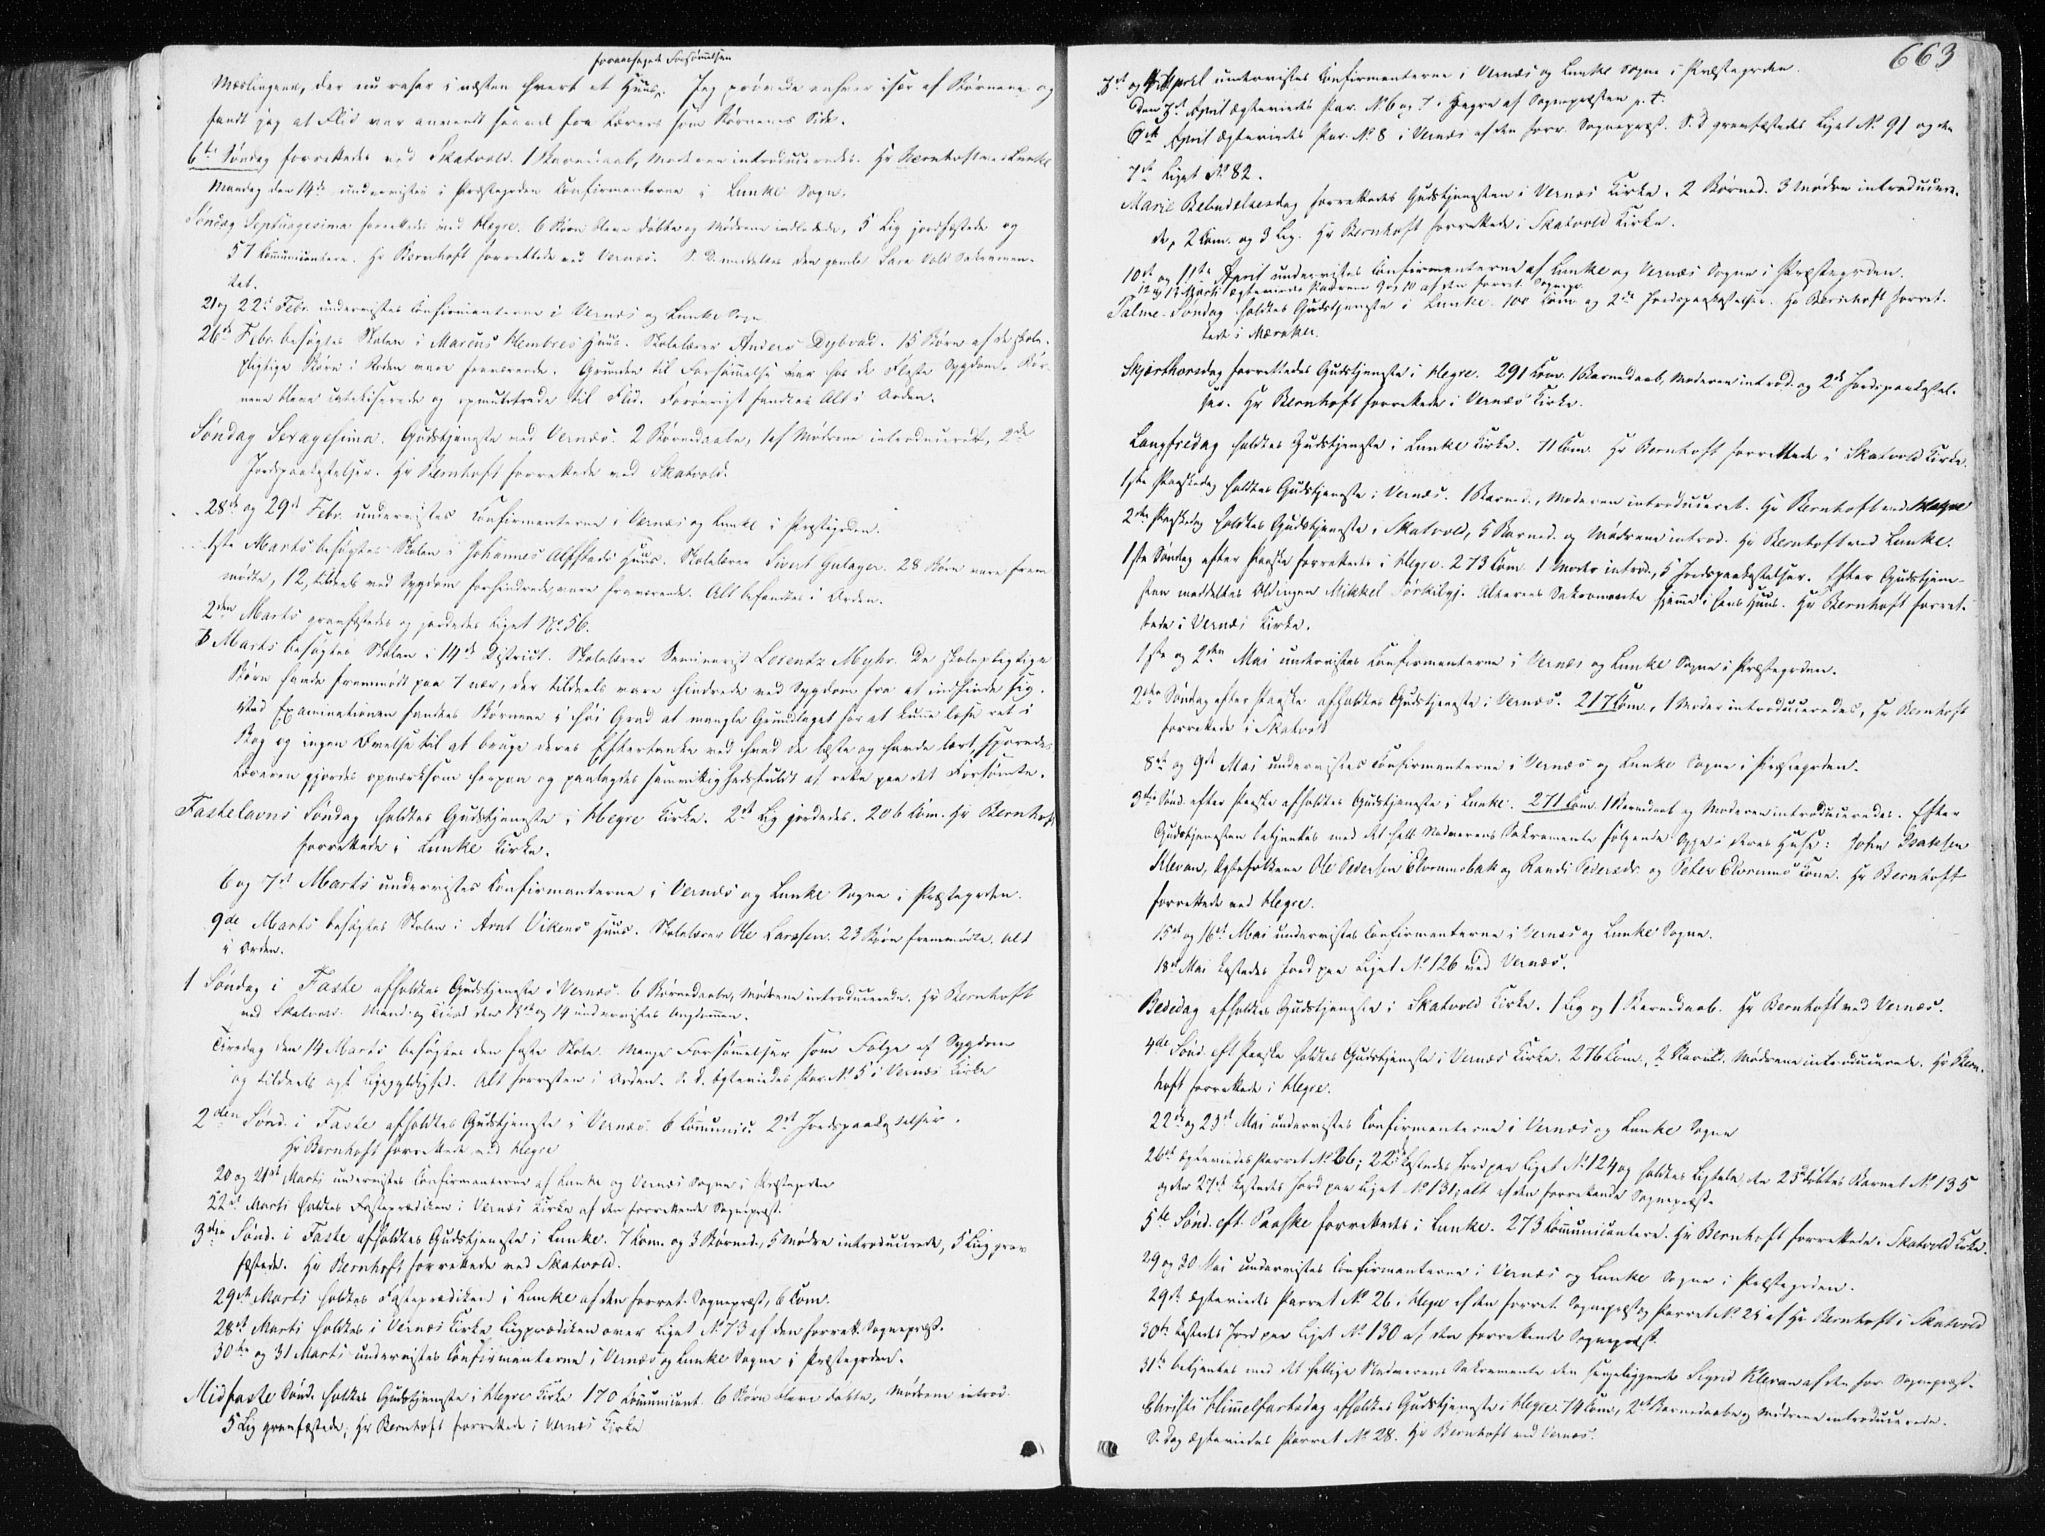 foraarsagede Forsømmelsen
Mæslingene, der nu raser i næsten hvert et Huus. Jeg prøvede enhver især af Børnene og
fandt jeg at Flid var anvendt saavel fra Lærers som Børnenes Side.
6te Søndag forrettedes ved Skatvold. 1 Barnedaab, Moderen introduceredes. Hr Bernhoft ved Lunke
Mandag den 14de undervistes i Præstegrden Confirmanterne i Lunke Sogn.
Søndag Septuagesima forrettede ved Hegre. 6 Børn bleve døbte og Mødrene indledede, 5 Lig jordfæstede og
57 Communicantere. Hr Bernhoft forrettede ved Vernæs. S. D. meddeltes den gamle Lars Vold Sakramen-
tet.
21 og 22d Febr. undervistes Confirmanterne i Vernæs og Lunke Sogn
26de Febr. besøgtes Skolen i Marcus Hembres Huus. Skolelærer Anders Dybvad. 15 Børn af de skole-
pligtige Børn i Roden vare fraværende. Grunden til Forsømmelse var hos de Fleste Sygdom. Bør-
nene bleve catekiserede og opmuntrede til Flid. Forøvrigt fandtes Alt i Orden.
Søndag Sexagesima. Gudstjeneste ved Vernæs. 2 Barnedaabe, 1 af Mødrene introduceret, 2de
Jordspaakastelser. Hr Bernhoft forrettede ved Skatvold.
28de og 29d Febr. undervistes Confirmanterne i Vernæs og Lunke i Præstegrden.
1ste Marts besøgtes Skolen i Johannes Alstads Huus. Skolelærer Sivert Gulager. 28 Børn vare frem
mødte, 12, tildeels ved Sygdom forhindrede, vare fraværende. Alt befandtes i Orden.
2den Marts gravfæstedes og jordedes Liget No 56.
3 Marts besøgtes Skolen i 14de District. Skolelærer Seminarist Lorentz Myhr. De skolepligtige
Børn havde fremmødt paa 7 nær, der tildeels vare hindrede ved Sygdom fra at indfinde sig.
Ved Examinationen fandtes Børnene i høi Grad at mangle Grundlaget for at kunne læse ret i
Bog og ingen Øvelse til at bruge deres Eftertanke ved hvad de læste og havde lært, sporedes
Læreren gjordes opmærksom herpaa og paalagdes samvittighedsfuldt at rette paa det Forsømte.
Fastelavns Søndag holdtes Gudstjeneste i Hegre Kirke. 2de Lig jordedes. 206 Com. Hr Bernhoft
forrettede i Lunke Kirke.
6 og 7d Marts undervistes Confirmanterne i Vernæs og Lunke Sogne i Præstegrden.
9de Marts besøgtes Skolen i Arnt Vikens Huus. Skolelærer Ole Larssen. 23 Børn fremmødte. Alt
i Orden.
1 Søndag i Faste afholdtes Gudstjeneste i Vernæs. 6 Barnedaabe, Mødrene introducerede. Hr Bernhoft
ved Skatvold. Mand. og Tirsd. den 13de og 14 undervistes Ungdommen.
Tirsdag den 14 Marts besøgtes den faste Skole. Mange Forsømmelser som Følge af Sygdom
og tildeels af Ligegyldighed. Alt forresten i Orden. S. d. ægteviedes Par. No 5 i Vernæs Kirke
2den Sønd. i Faste afholdtes Gudstjeneste i Vernæs. 6 Communic. 2de Jordspaakastelser.
Hr Bernhoft forrettede ved Hegre
20 og 21de Marts undervistes Confirmanterne af Lunke og Vernæs Sogne i Præstegrden
22de Marts holdtes Fasteprædiken i Vernæs Kirke af den forrettende Sognepræst.
3die Sønd. i Faste afholdtes Gudstjeneste i Lunke. 7 Com. og 3 Børned., 5 Mødre introducerede, 5 Lig grav
fæstede. Hr Bernhoft forrettede ved Skatvold.
29de Marts holdtes Fasteprædiken i Lunke af den forret. Sognepræst, 6 Com.
28de Marts holdtes i Vernæs Kirke Ligprædiken over Liget No 73 af den forrett. Sognepræst.
30te og 31 Marts undervistes Confirmanterne i Vernæs og Lunke Sogne i Præstegrden.
Midfaste Sønd. holdtes Gudstjeneste i Hegre Kirke 170 Communicant. 6 Børn bleve døbte, Mødrene introd.
5 Lig gravfæstede, Hr Bernhoft forrettede i Vernæs Kirke
663
3de og 4 April undervistes Confirmanterne i Vernæs og Lunke Sogne i Præstegrden.
den 3de April ægteviedes Par. No 6 og 7 i Hegre af Sognepræsten p. t.
6te April ægteviedes Par. No 8 i Vernæs af den forr. Sognepræst. S. d gravfæstedes Liget No 91 og den
7de Liget No 82.
Marie Bebudelsesdag forrettedes Gudstjenesten i Vernæs Kirke. 2 Børned. 3 Mødre introducere-
de, 2 Com. og 3 Lig. Hr Bernhoft forrettede i Skatvold Kirke.
10de og 11te April undervistes Confirmanterne af Lunke og Vernæs Sogne i Præstegrden.
12 og 13 Marts ægteviedes Parrene 9 og 10 af den forret. Sognepr.
Palme-Søndag holdtes Gudstjeneste i Lunke. 100 Com. og 2de Jordspaakastelser. Hr Bernhoft forret-
tede i Meraker.
Skjærthorsdag forrettedes Gudstjeneste i Hegre. 291 Com. 1 Barnedaab, Moderen introd. og 2de Jordspaakastel-
ser. Hr Bernhoft forrettede i Vernæs Kirke.
Langfredag holdtes Gudstjeneste i Lunke Kirke. 11 Com. Hr Bernhoft forrettede i Skatvold Kirke.
1ste Paaskedag holdtes Gudstjeneste i Vernæs. 1 Barned., Moderen introduceret. Hr Bernhoft ved Hegre
2den Paaskedag holdtes Gudstjeneste i Skatvold, 5 Barned. og Mødrene introd. Hr Bernhoft ved Lunke.
1ste Søndag efter Paaske forrettedes i Hegre. 273 Com. 1 Moder introd., 5 Jordspaakastelser. Efter Gudstjene-
sten meddeltes Oldingen Mikkel Alterens Sakramente hjemme i hans Huus. Hr Bernhoft forret-
tede i Vernæs Kirke.
1ste og 2den Mai undervistes Confirmanterne i Vernæs og Lunke Sogne i Præstegrden.
2den Søndag efter Paaske afholdtes Gudstjeneste i Vernæs. 217 Com., 1 Moder introduceredes, Hr Bernhoft
forrettede i Skatvold
8de og 9de Mai undervistes Confirmanterne i Vernæs og Lunke Sogne i Præstegrden.
3die Sønd. efter Paaske afholdtes Gudstjeneste i Lunke. 271 Com. 1 Barnedaab og Moderen introduceredes. Efter
Gudstjenesten betjentes med det hell. Nadverens Sakramente følgende Syge i deres Huse: John Isaksen
Klevan, Ægtefolkene Ole Pedersen og Randi Pedersdr. og Peter Kone. Hr Bernhoft
forrettede ved Hegre.
15de og 16de Mai undervistes Confirmanterne i Vernæs og Lunke Sogne.
18de Mai kastedes Jord paa Liget No 126 ved Vernæs.
Bededag afholdtes Gudstjeneste i Skatvold Kirke. 1 Lig og 1 Barnedaab. Hr Bernhoft ved Vernæs.
4de Sønd. eft Paaske holdtes Gudstjeneste i Vernæs Kirke. 276 Com., 2 Barned. Mødrene introducerede. Hr Bern-
hoft forrettede i Hegre.
22de og 23de Mai undervistes Confirmanterne i Vernæs og Lunke Sogne
26de ægteviedes Parret No 26; 22de kastedes Jord paa Liget No 124 og holdtes Ligtale, den 25de døbtes Barnet No 135
og den 27de kastedes Jord paa Liget No 131; alt af den forrettende Sognepræst.
5te Sønd. eft. Paaske forrettedes i Lunke. 273 Communicantere. Hr Bernhoft forrettede i Skatvold Kirke.
29 og 30 Mai undervistes Confirmanterne i Vernæs og Lunke Sogne i Præstegrden.
29de ægteviedes Parret No 26 i Hegre af den forret. Sognepræst og Parret No 25 af Hr Bernhoft i Skatvold
30te kastedes Jord paa Liget No 130 af den forrettende Sognepræst.
31te betjentes med det hellige Nadverens Sakramente den sengeliggende Sigrid Klevan af den for. Sognepræst.
Christi Himmelfartsdag afholdtes Gudstjeneste i Hegre. 74 Com, 2de Barnedaabe og Mødrene introducerede.
S. dag ægteviedes Parret No 28. Hr Bernhoft ved Vernæs.